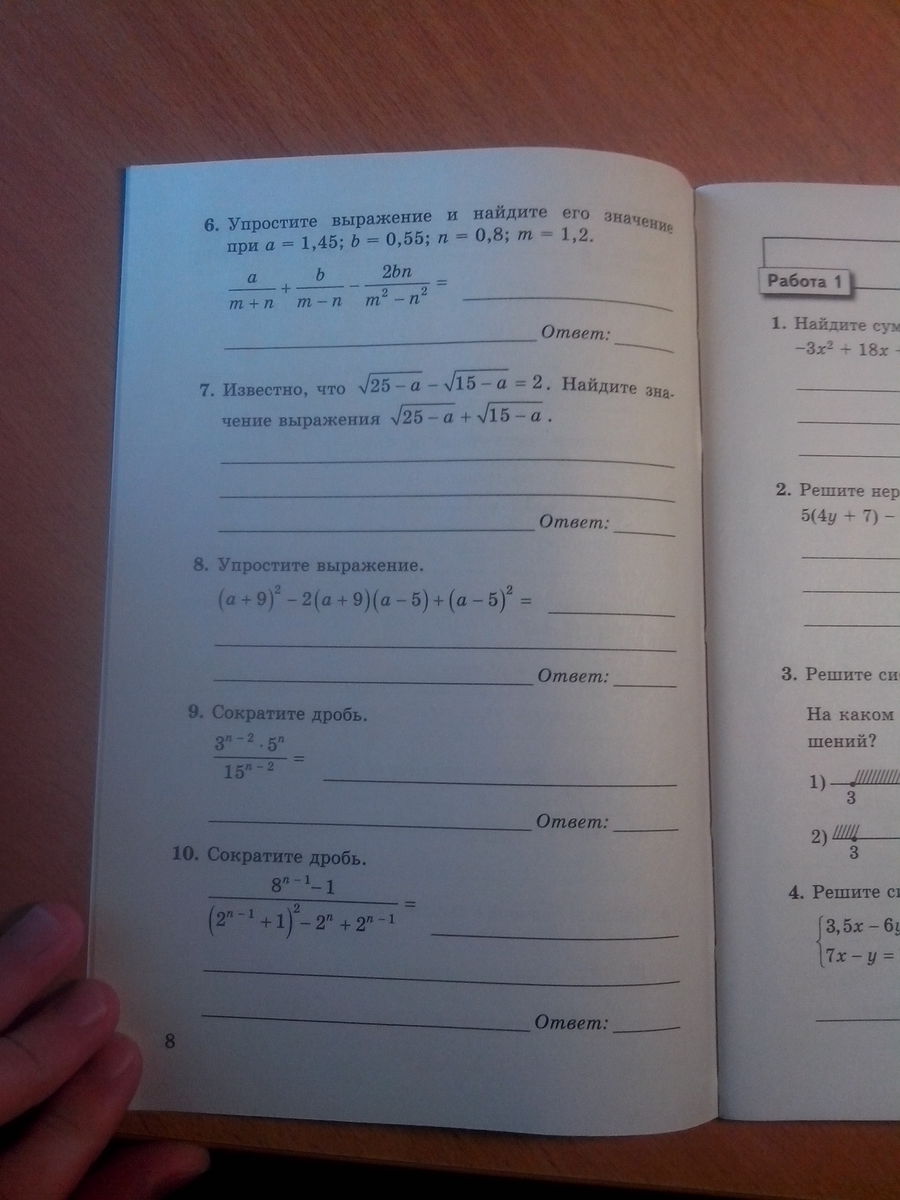 6. Упростите выражение и найдите его значение
при a = 1,45; b = 0,55; n = 0,8; m = 1,2.
a/(m + n) + b/(m − n) − 2bn/(m² − n²) =
Ответ:
7. Известно, что √(25 − a) − √(15 − a) = 2. Найдите зна-
чение выражения √(25 − a) + √(15 − a).
Ответ:
8. Упростите выражение.
(a + 9)² − 2(a + 9)(a − 5) + (a − 5)² =
Ответ:
9. Сократите дробь.
(3ⁿ⁻² · 5ⁿ)/15ⁿ⁻² =
Ответ:
10. Сократите дробь.
(8ⁿ⁻¹ − 1)/((2ⁿ⁻¹ + 1)² − 2ⁿ + 2ⁿ⁻¹) =
Ответ:
8
Работа 1
1. Найдите
−3x² + 18x
2. Решите
5(4y + 7) −
3. Решите
На каком
шений?
1)
3
2)
3
4. Решите
3,5x − 6y
7x − y =